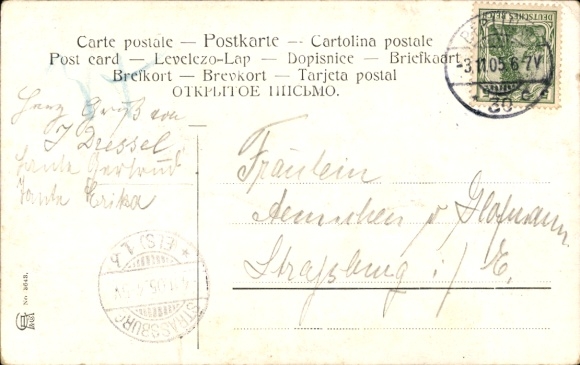 Carte postale — Postkarte — Cartolina postale
Post card — Levelezo-Lap — Dopisnice — Briefkaart
Brefkort — Brevkort — Tarjeta postal
ОТКРЫТОЕ ПИСЬМО.
DEUTSCHES REICH
-3.11.05.6-7V
30
Herz Gruß von
J Dressel
Tante Gertrud
Tante Erika
Fräulein
v
Strassburg i/E.
STRASSBURG
* (ELS) 1. h
No. 8648.